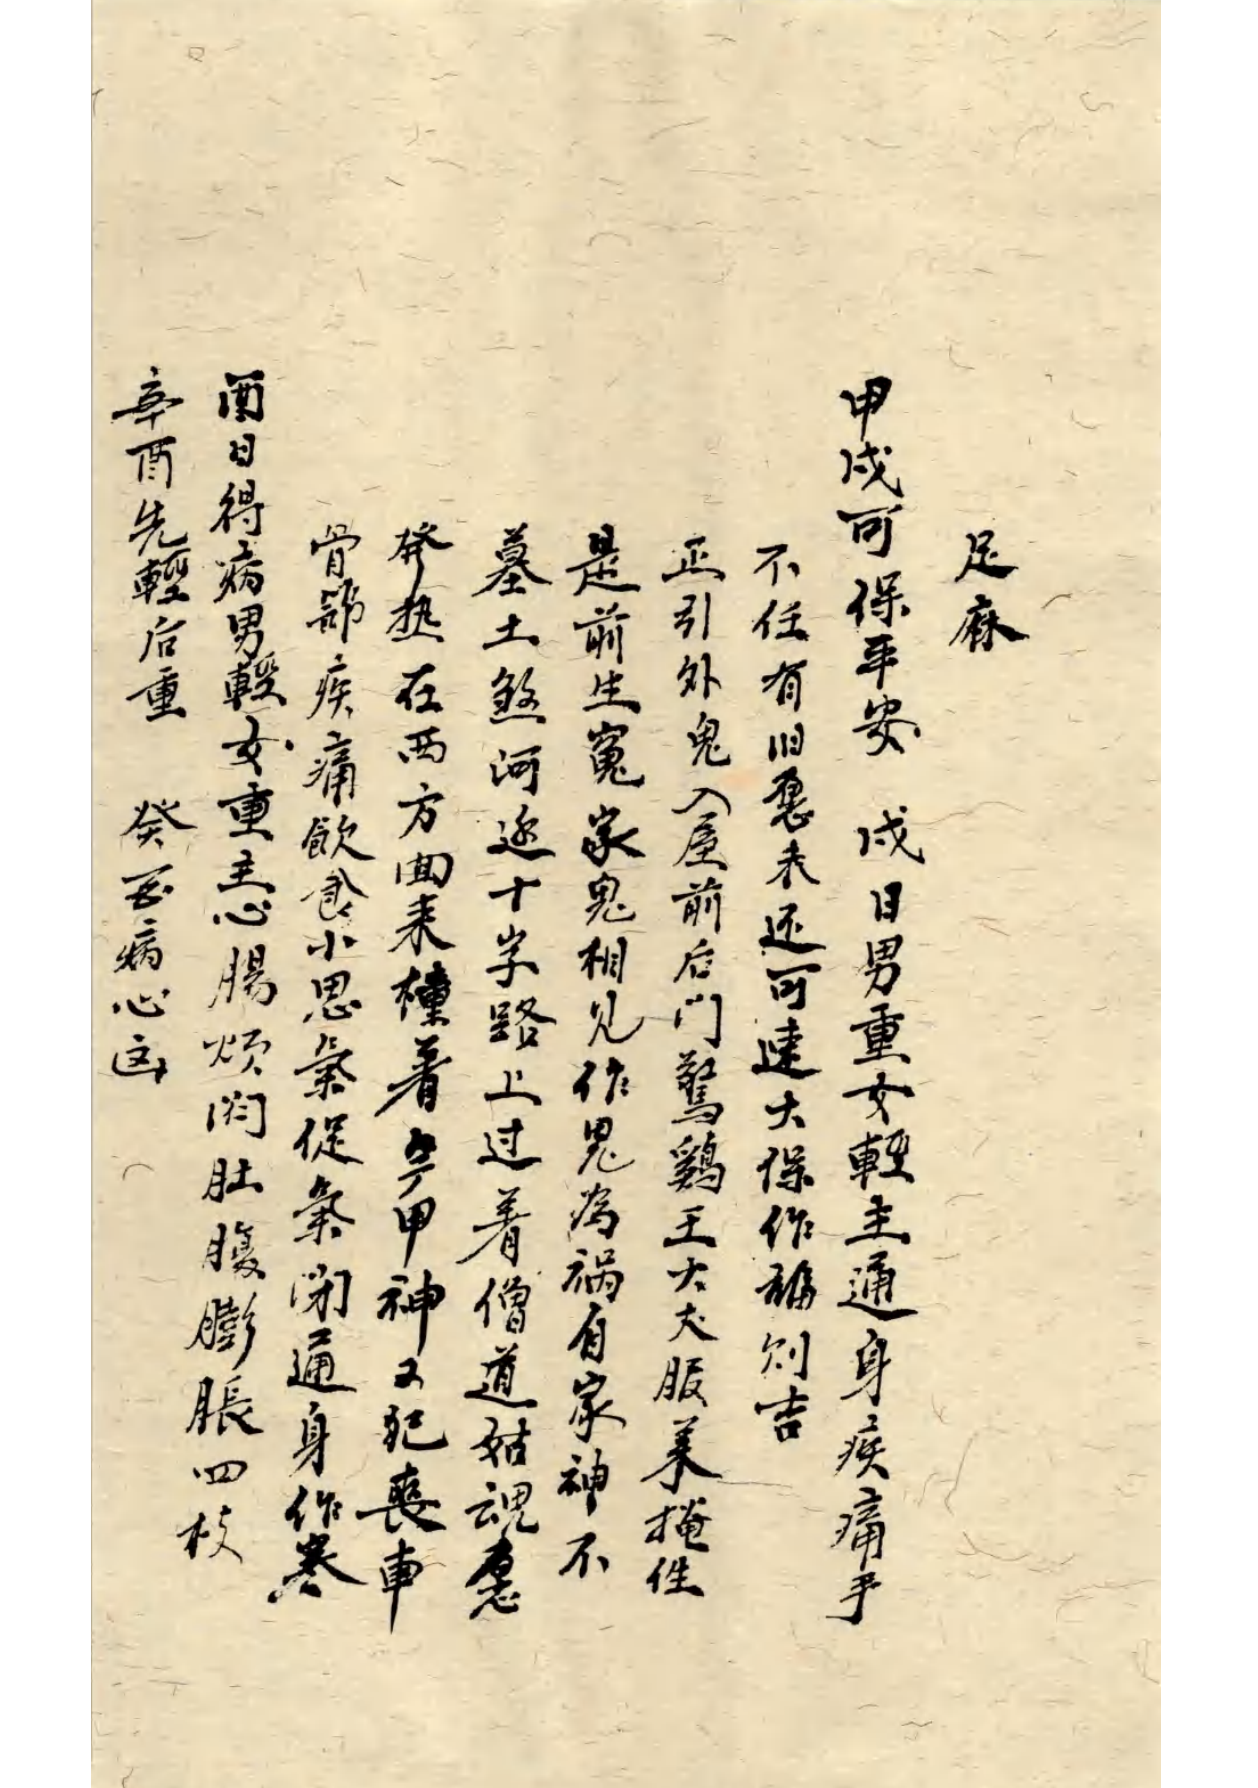 辛酉先輕后重　癸酉病心
酉日得病男輕女重主心腸烦闷肚腹膨脹四枝
骨節疾痛飲食小思氣促氣闭通身作寒
發热在西方回来橦着甲神又犯喪車
墓土煞河边十字路上过着僧道姑魂愿
是前生冤家鬼相见作鬼为祸自家神不
正引外鬼入屋前后门驚鷄王大犬服来掩性
不任有旧愿未还可速大保作福则吉
甲戌可保平安　戌日男重女輕主通身疾痛手
足麻